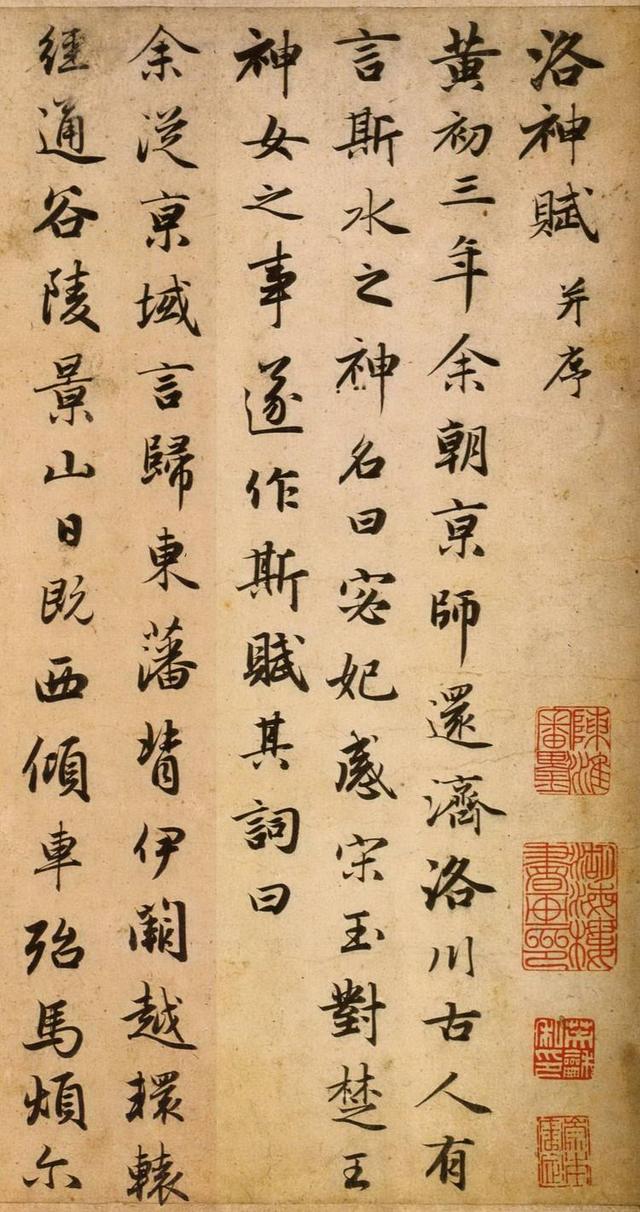 洛神賦 并序
黄初三年余朝亰師還濟洛川古人有
言斯水之神名曰宓妃感宋玉對楚王
神女之事遂作斯賦其詞曰
余從亰域言歸東藩背伊闕越轘轅
經通谷陵景山日既西傾車殆馬煩尔